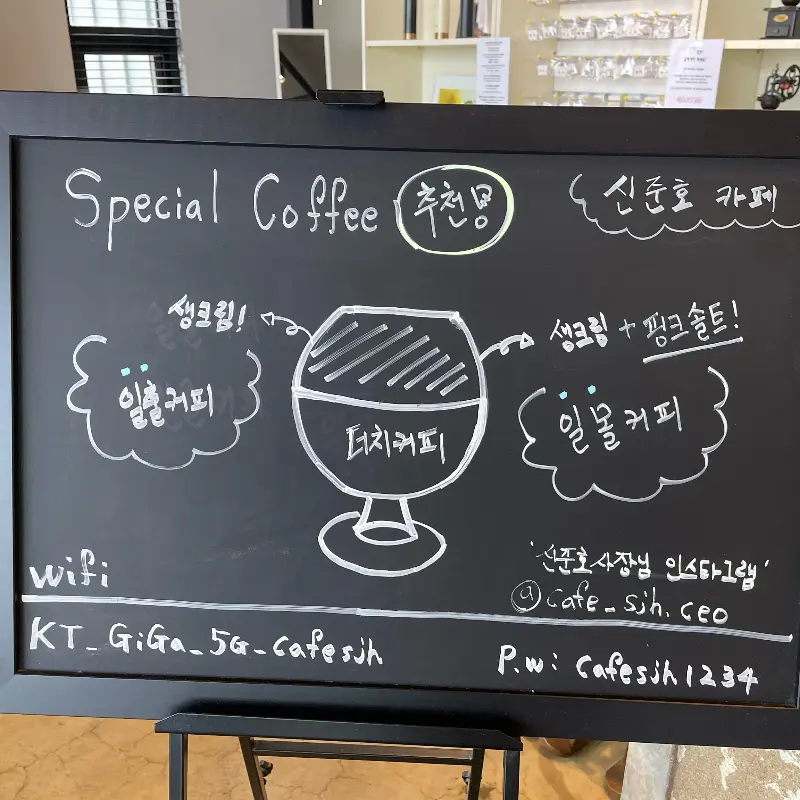 Special Coffee 추천몽
신준호 카페
생크림!
생크림 + 핑크솔트!
일출커피
더치커피
일몰커피
'신준호사장님 인스타그램'
@cafe_sjh.ceo
wifi
KT_GiGa_5G_cafesjh
P.w: cafesjh1234